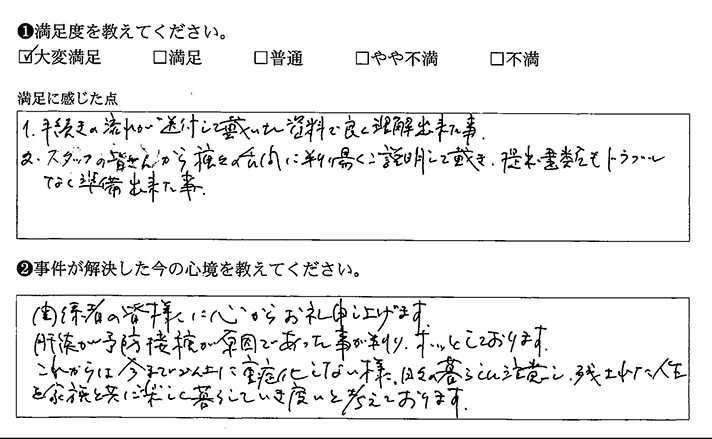 ❶満足度を教えてください。
☑大変満足 □満足 □普通 □やや不満 □不満
満足に感じた点
1. 手続きの流れが送付して戴いた資料で良く理解出来た事.
2. スタッフの皆さんから種々の案内に判り易くご説明して戴き、提出書類もトラブル
なく準備出来た事.
❷事件が解決した今の心境を教えてください。
関係者の皆様に心からお礼申し上げます
肝炎が予防接種が原因であった事が判り、ホッとしております.
これからは今まで以上に重症化しない様、日々の暮らしに注意し、残された人生
を家族と共に楽しく暮らしていき度いと考えております.